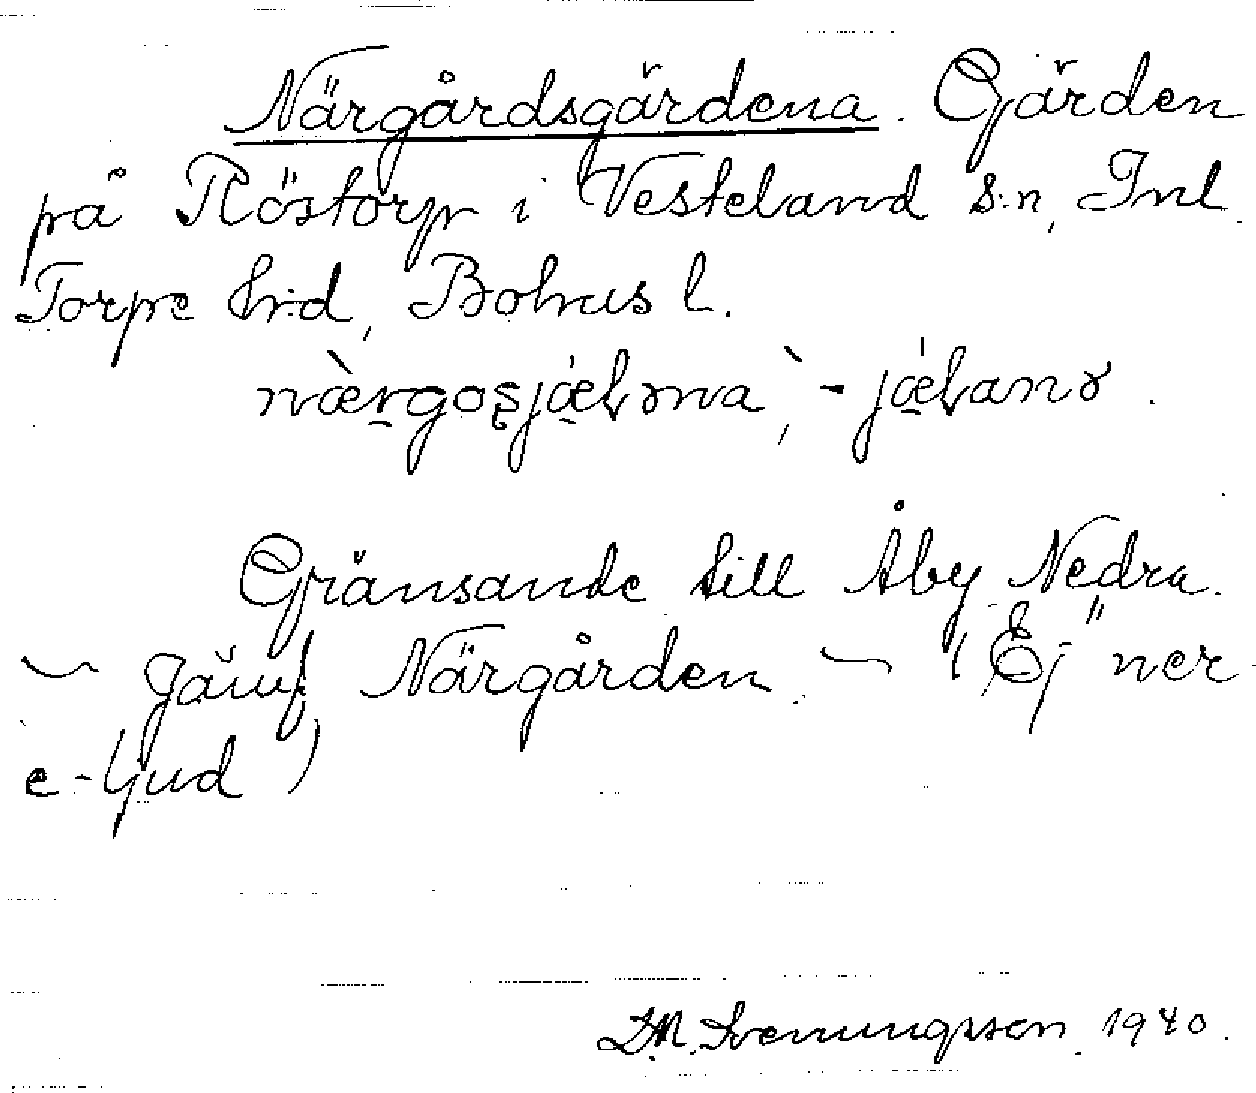 Närgårdsgärdena. Gärden
på Röstorp i Vesteland s:n, Inl.
Torpe h:d, Bohus l.
Gränsande till Åby Nedra.
— Jämf. Närgården. — (Ej " ner
e-ljud)
D.M. Svenungsson. 1940.